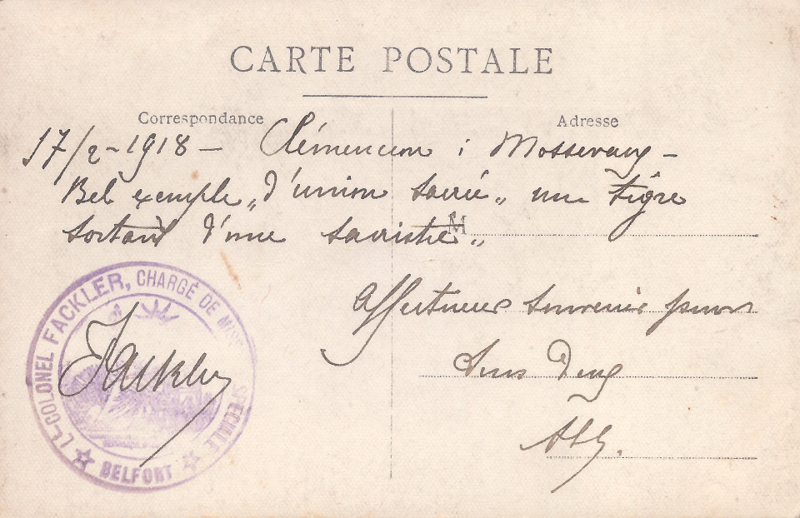 CARTE POSTALE
Correspondance
Adresse
17/2-1918 - Clémenceau à Massevaux -
Bel exemple „d'union sacrée„ un Tigre
sortant d'une sacristie„
M
Affectueux souvenir pour
tous deux
Lt-COLONEL FACKLER, CHARGÉ DE MISSION SPECIALE
BELFORT
Fackler